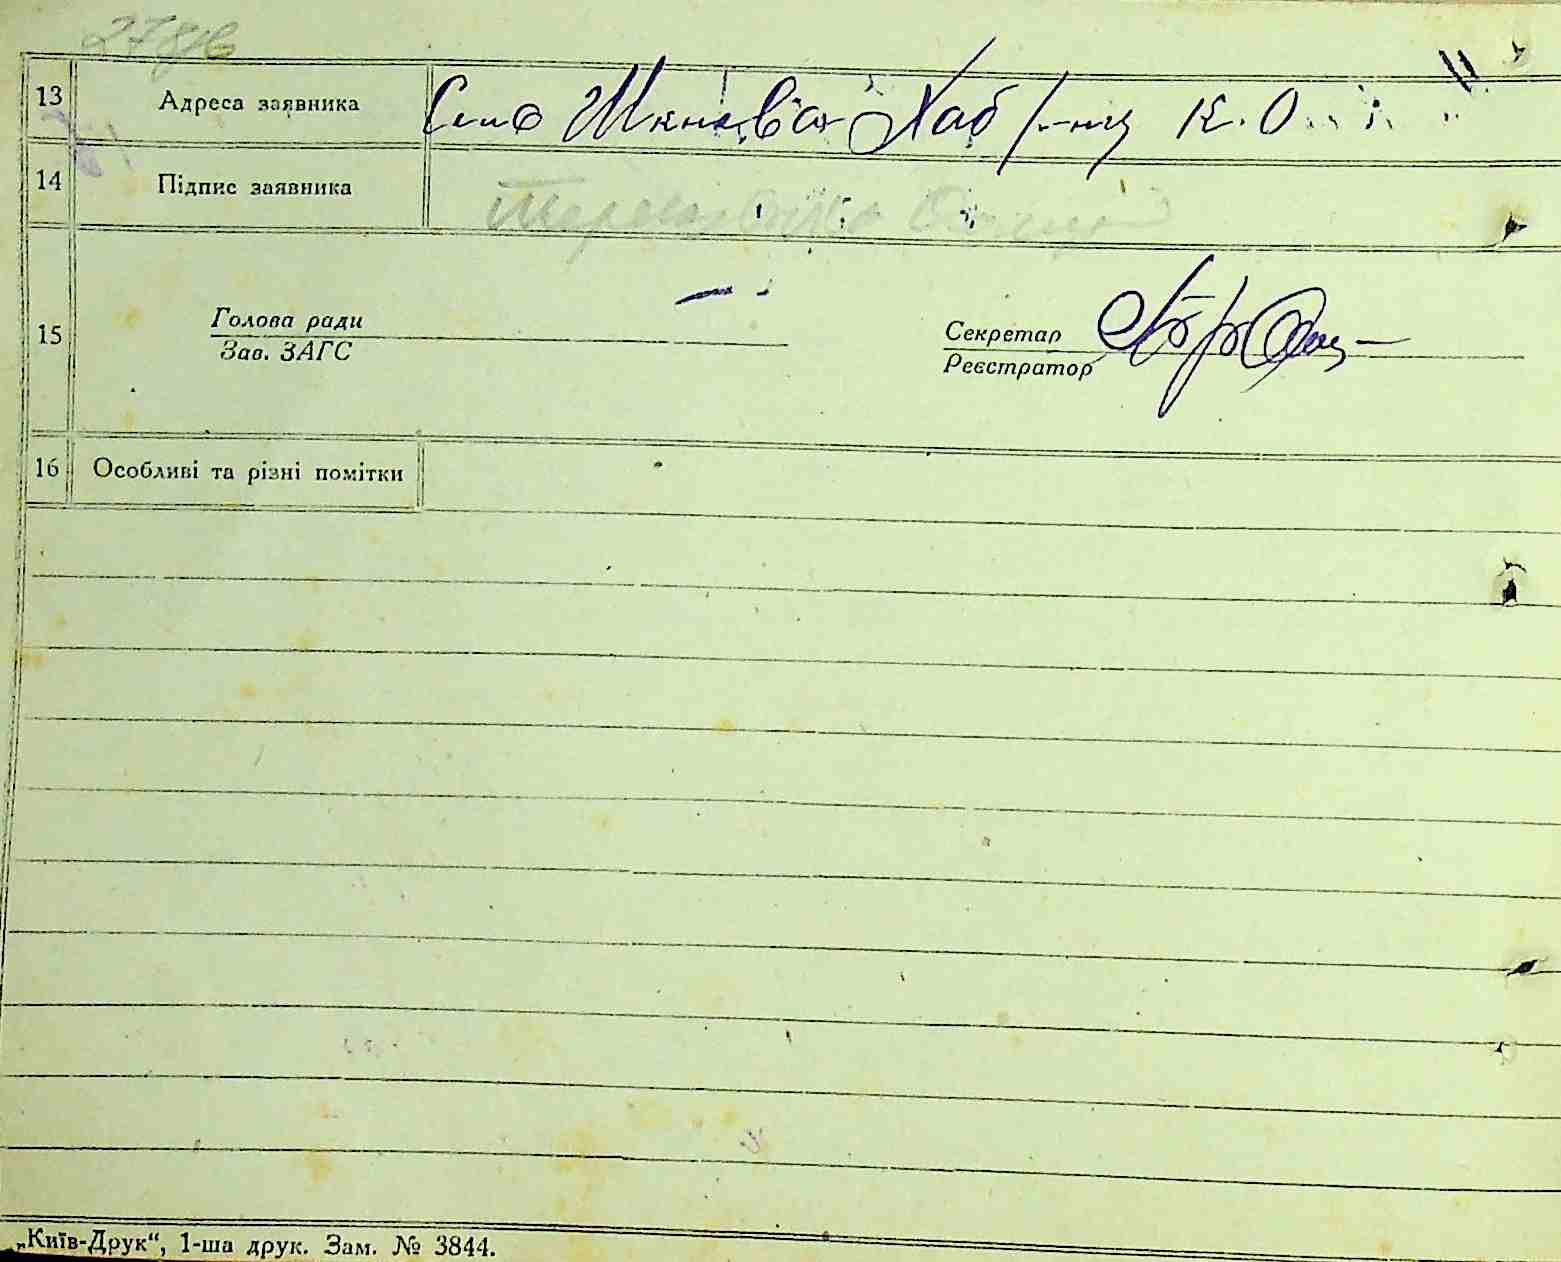 13 Адреса заявника Село Шкнева Хаб р-ну К.О.
14 Підпис заявника
15 Голова ради Секретар
Зав. ЗАГС Реєстратор
16 Особливі та різні помітки
„Київ-Друк“, 1-ша друк. Зам. № 3844.